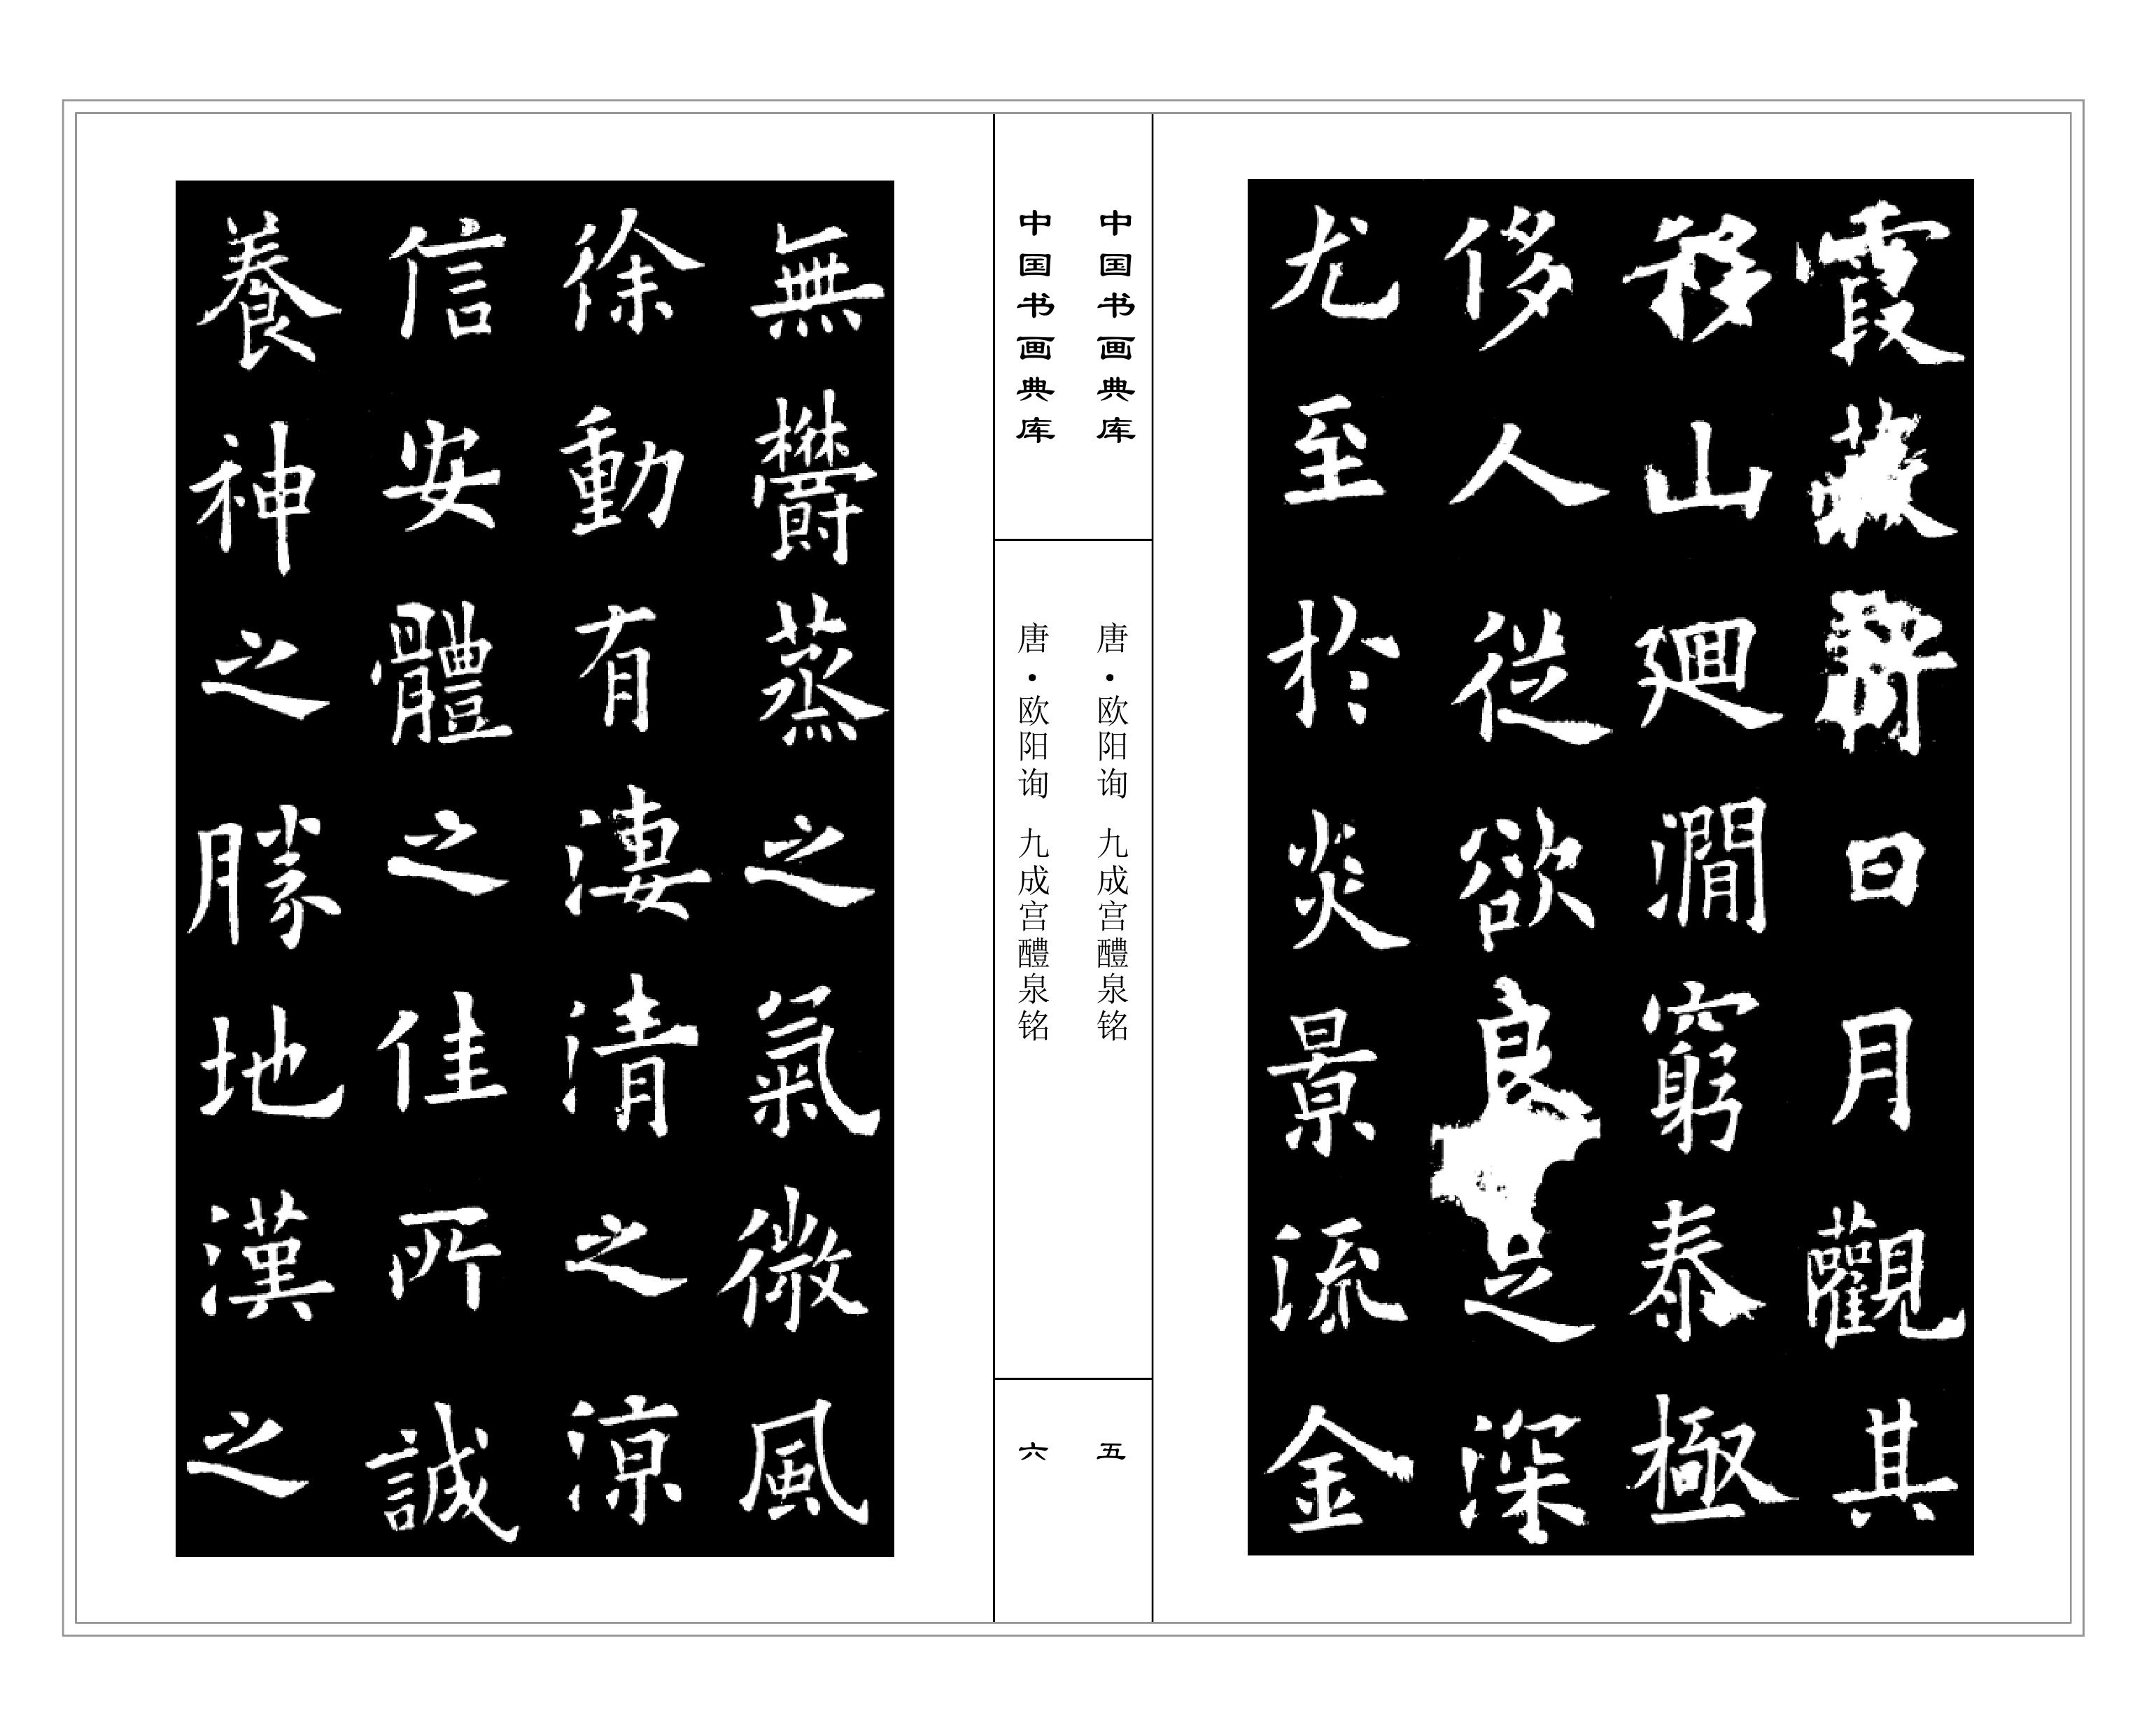 霞蔚蔽日月觀其
移山迴澗窮泰極
侈人從欲良足深
尤至於炎景流金
中国书画典库
唐·欧阳询 九成宫醴泉铭
五
中国书画典库
唐·欧阳询 九成宫醴泉铭
六
無欝蒸之氣微風
徐動有淒清之涼
信安體之佳所誠
養神之勝地漢之